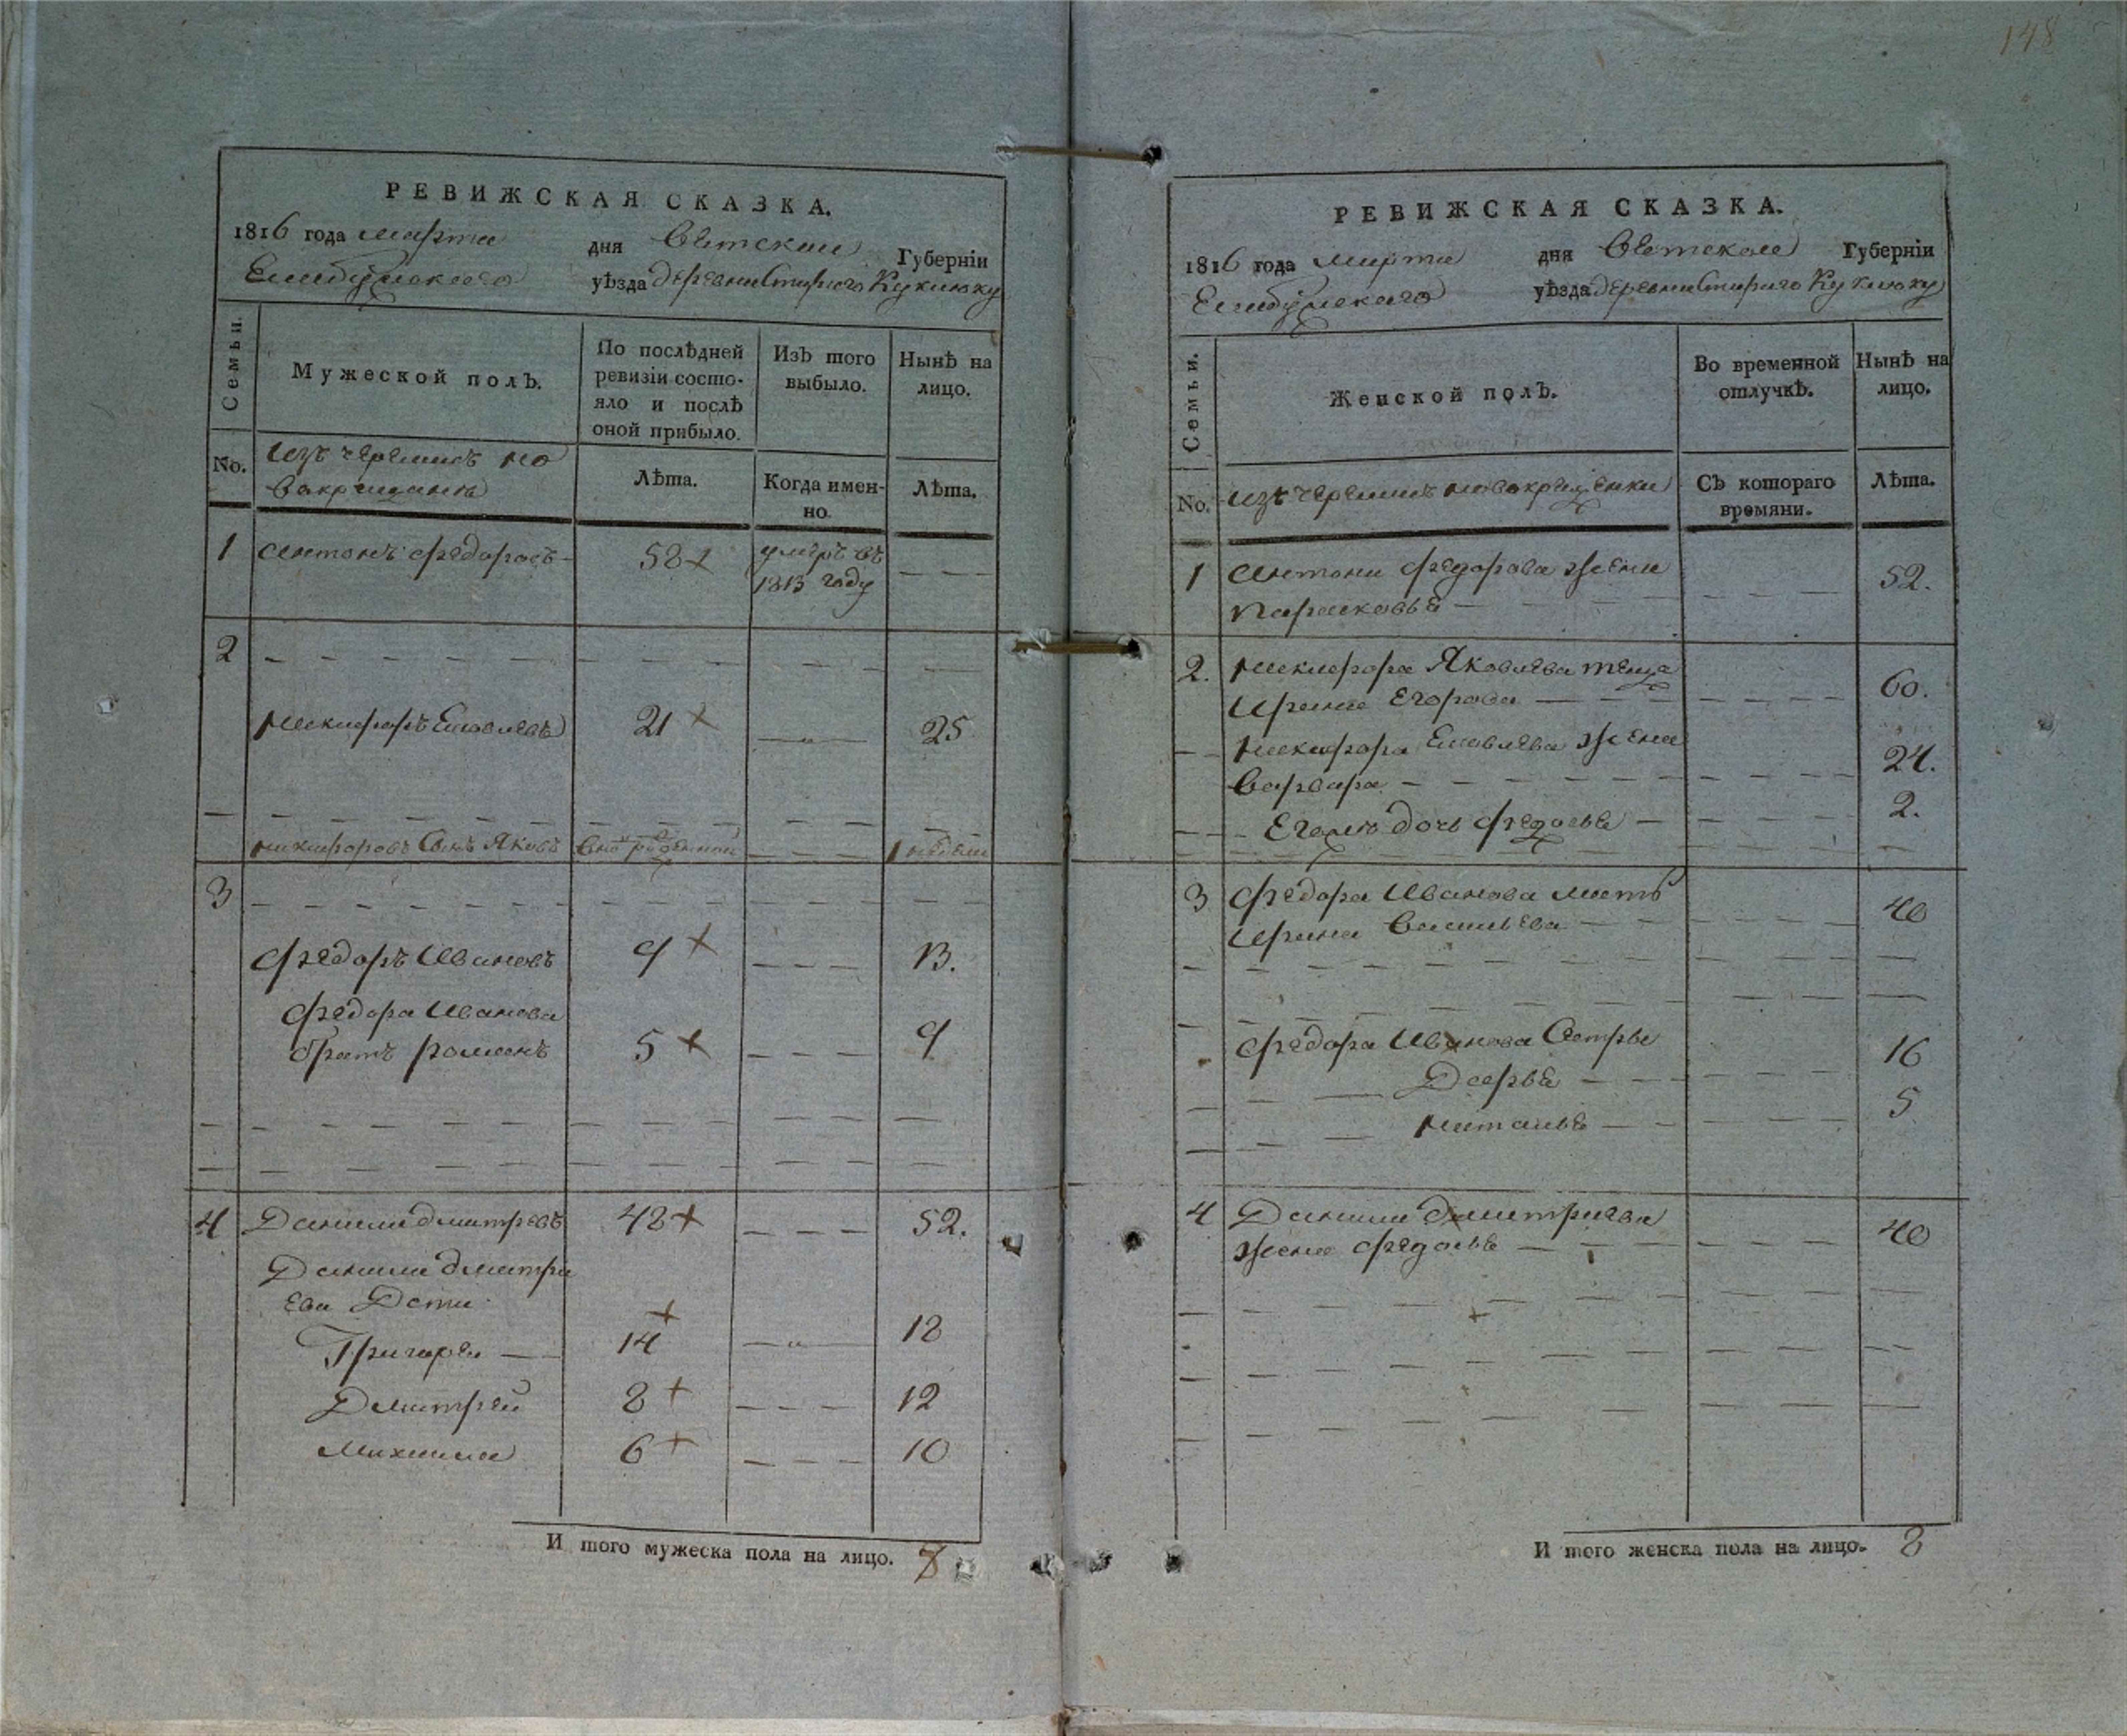 148
РЕВИЖСКАЯ СКАЗКА.
1816 года марта дня Вятской Губернїи
Елабужского уѣзда деревни Старого Куклюку
Семьи.
Мужеской полЪ.
По послѣдней ревизїи состо-
яло и послѣ
оной прибыло.
ИзЪ того
выбыло.
НынѢ на
лицо.
No.
изъ черемисъ но
вокрещенъ
Лѣта.
Когда имен-
но.
Лѣта.
1 Антонъ Федоровъ 58 + умеръ въ
1813 году
2
Никифоръ Яковлевъ 21 + 25
Никифоровъ Сынъ Яковъ вно рожденной 1 недели
3
Федоръ Ивановъ 9 + 13.
Федора Иванова
братъ Романъ 5 + 9
4 Данила Дмитревъ 48 + 52.
Данила Дмитри
ева Дети
Григорей 14 + 18
Дмитрей 8 + 12
Михаила 6 + 10
И того мужеска пола на лицо. 8
РЕВИЖСКАЯ СКАЗКА.
1816 года марта дня Вятской Губернїи
Елабужскаго уѣзда деревни Стараго Куклюку
Семьи.
Женской полЪ.
Во временной
отлучкѢ.
НынѢ на
лицо.
No.
изъ черемисъ новокрещенки
СЪ котораго
времяни.
Лѣта.
1 Антона Федорова жена
Парасковья 52.
2. Никифора Яковлева теща
Ирина Егорова 60.
Никифора Яковлева жена
Варвара 24.
Его дочь Федосья 2.
3 Федора Иванова мать
Ирина Васильева 40
Федора Иванова Сестры
Дарья 16
Наталья 5
4 Данила Дмитриева
жена Федосья 40
И того женска пола на лицо. 8